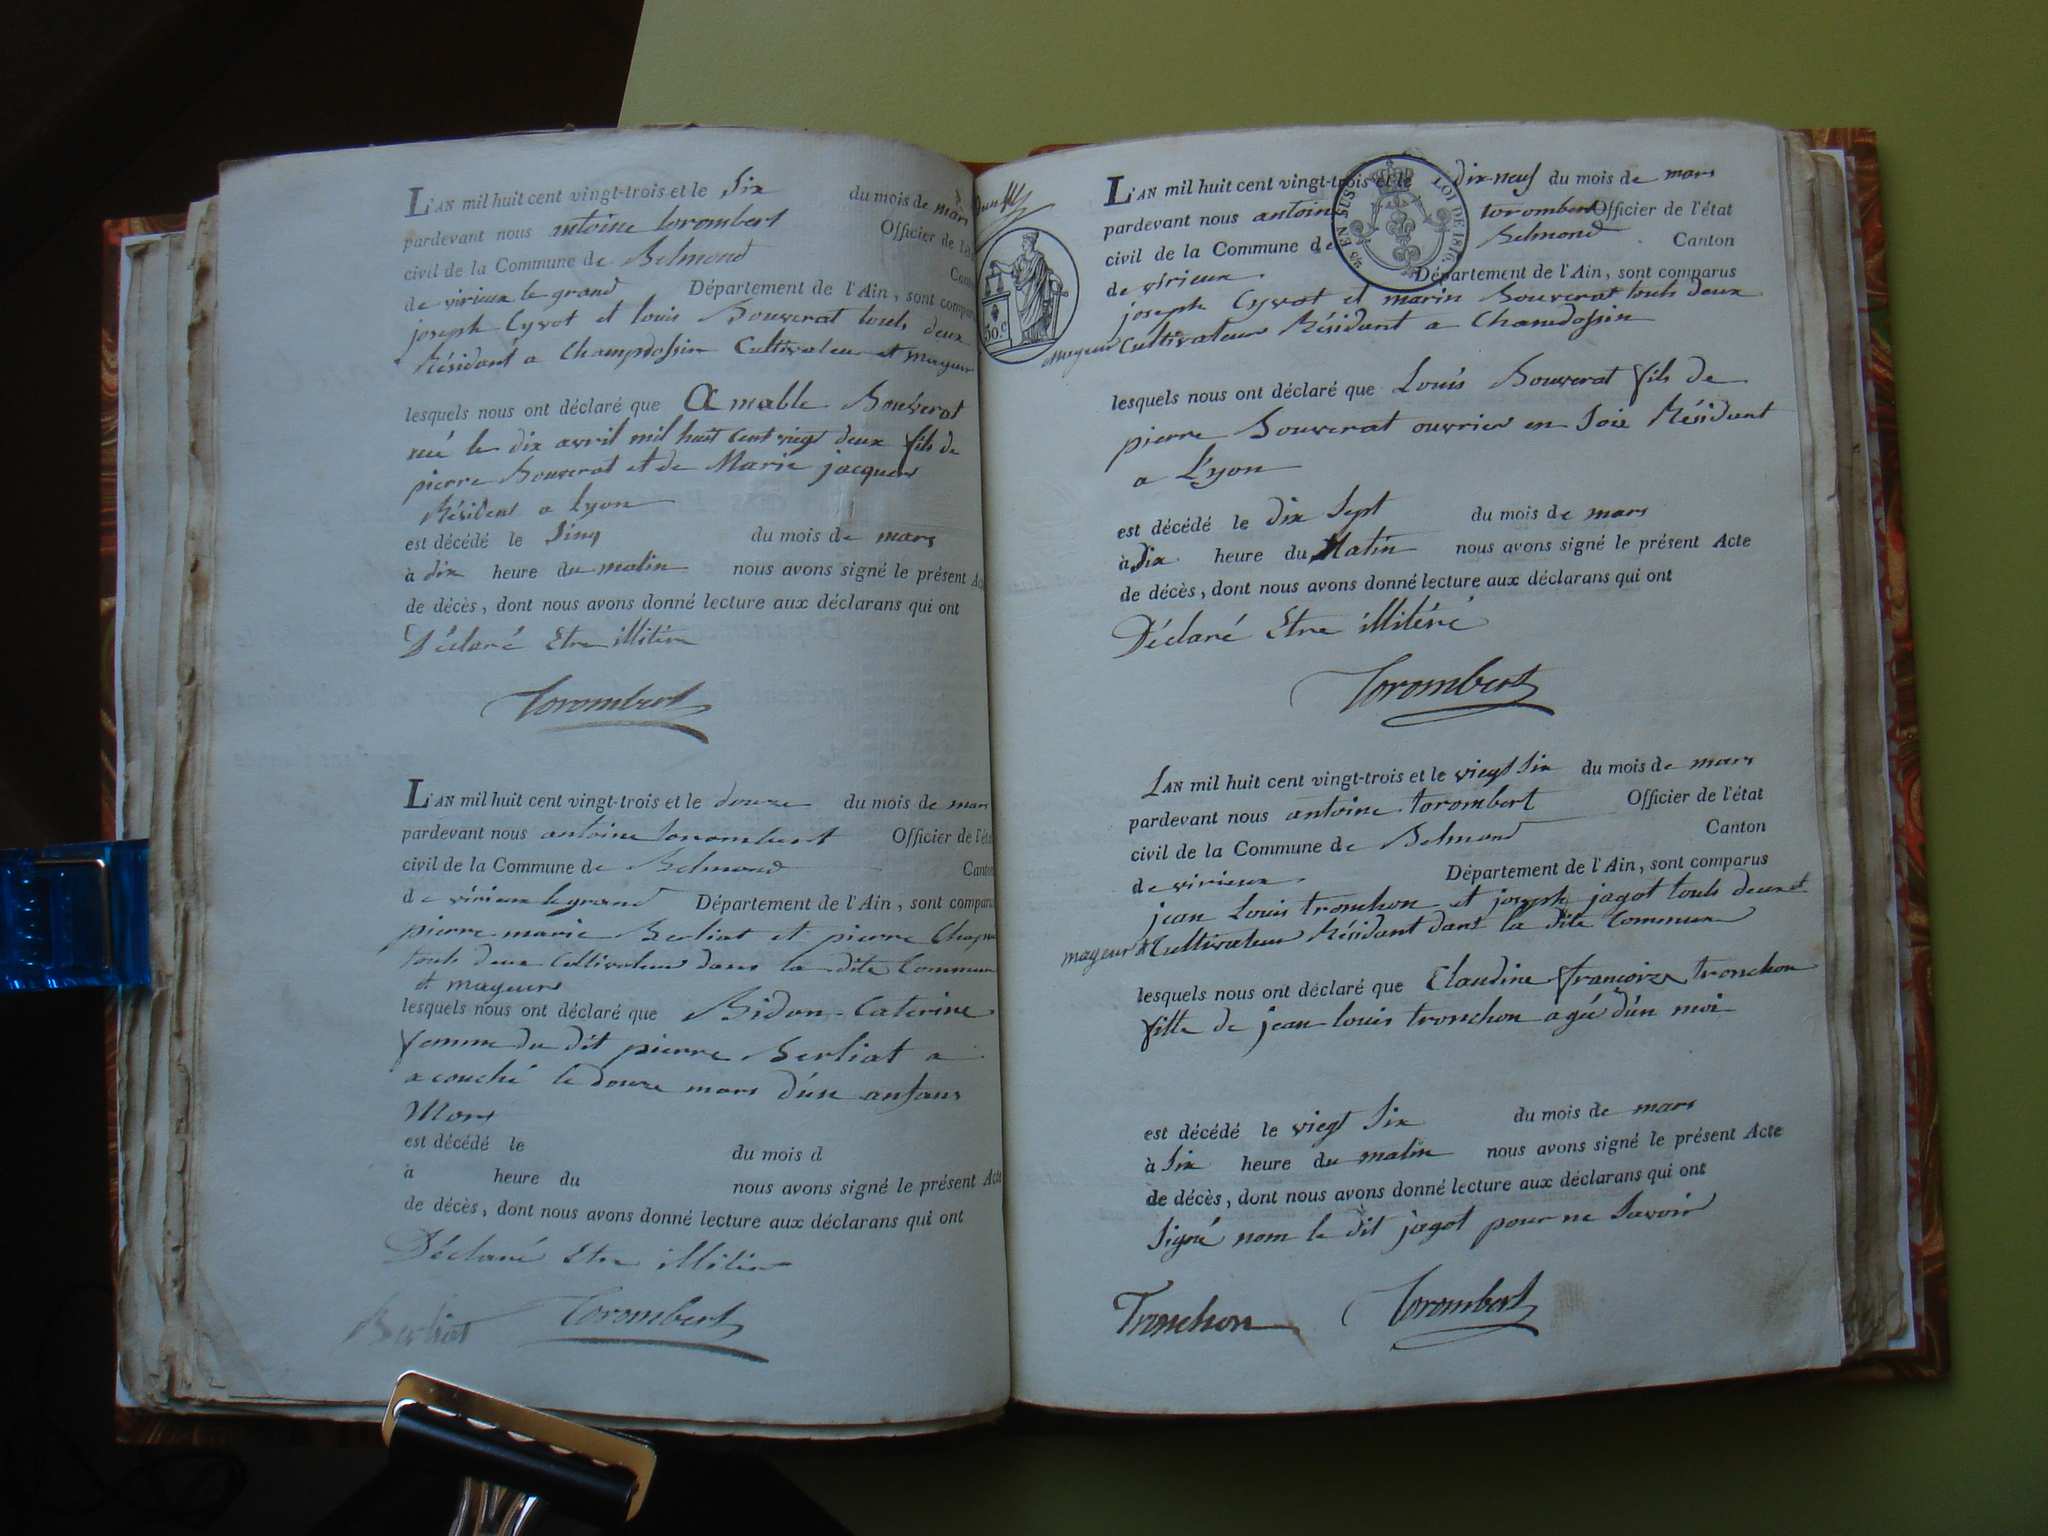 L'AN mil huit cent vingt-trois et le Six du mois de mars
pardevant nous antoine torombert Officier de l'état
civil de la Commune de Belmond Canton
de virieux le grand Département de l'Ain, sont comparus
joseph Cyvot et louis Bouverat touts deux
Résidant a Champdossin Cultivateur et mayeur
lesquels nous ont déclaré que Amable Bouverat
né le dix avril mil huit cent viegt deux fils de
pierre Bouverat et de Marie jacquer
Résident a Lyon
est décédé le Sinq du mois de mars
à dix heure du matin nous avons signé le présent Acte
de décès, dont nous avons donné lecture aux déclarans qui ont
Déclaré Etre illitére
Torombert
L'AN mil huit cent vingt-trois et le douze du mois de mars
pardevant nous antoine torombert Officier de l'état
civil de la Commune de Belmond Canton
de virieux le grand Département de l'Ain, sont comparus
pierre marie Berliat et pierre
touts deux Cultivateur dans la dite Commune
et mayeurs
lesquels nous ont déclaré que Bidon Caterine
femme du dit pierre Berliat a
acouché le douze mars d'un anfans
Mors
est décédé le du mois d
à heure du nous avons signé le présent Acte
de décès, dont nous avons donné lecture aux déclarans qui ont
Déclaré Etre illitére
Berliat Torombert
30.c
EN SUS LOI DE 1816.
L'AN mil huit cent vingt-trois et le dix-neuf du mois de mars
pardevant nous antoine torombert Officier de l'état
civil de la Commune de Belmond Canton
de virieux Département de l'Ain, sont comparus
joseph Cyvot et marin Bouverat touts deux
mayeur Cultivateur Résidant a Chamdossin
lesquels nous ont déclaré que Louis Bouverat fils de
pierre Bouverat ouvrier en Soie Résidant
a Lyon
est décédé le dix Sept du mois de mars
à Six heure du Matin nous avons signé le présent Acte
de décès, dont nous avons donné lecture aux déclarans qui ont
Déclaré Etre illitéré
Torombert
L'AN mil huit cent vingt-trois et le viegt Six du mois de mars
pardevant nous antoine torombert Officier de l'état
civil de la Commune de Belmond Canton
de virieux Département de l'Ain, sont comparus
jean Louis tronchon et joseph jagot touts deux et
mayeur & Cultivateur Résidant dant la dite Commune
lesquels nous ont déclaré que Claudine françoize tronchon
fille de jean louis tronchon agée d'un moi
est décédé le viegt Six du mois de mars
à Six heure du matin nous avons signé le présent Acte
de décès, dont nous avons donné lecture aux déclarans qui ont
Signé nom le dit jagot pour ne Savoir
Tronchon Torombert